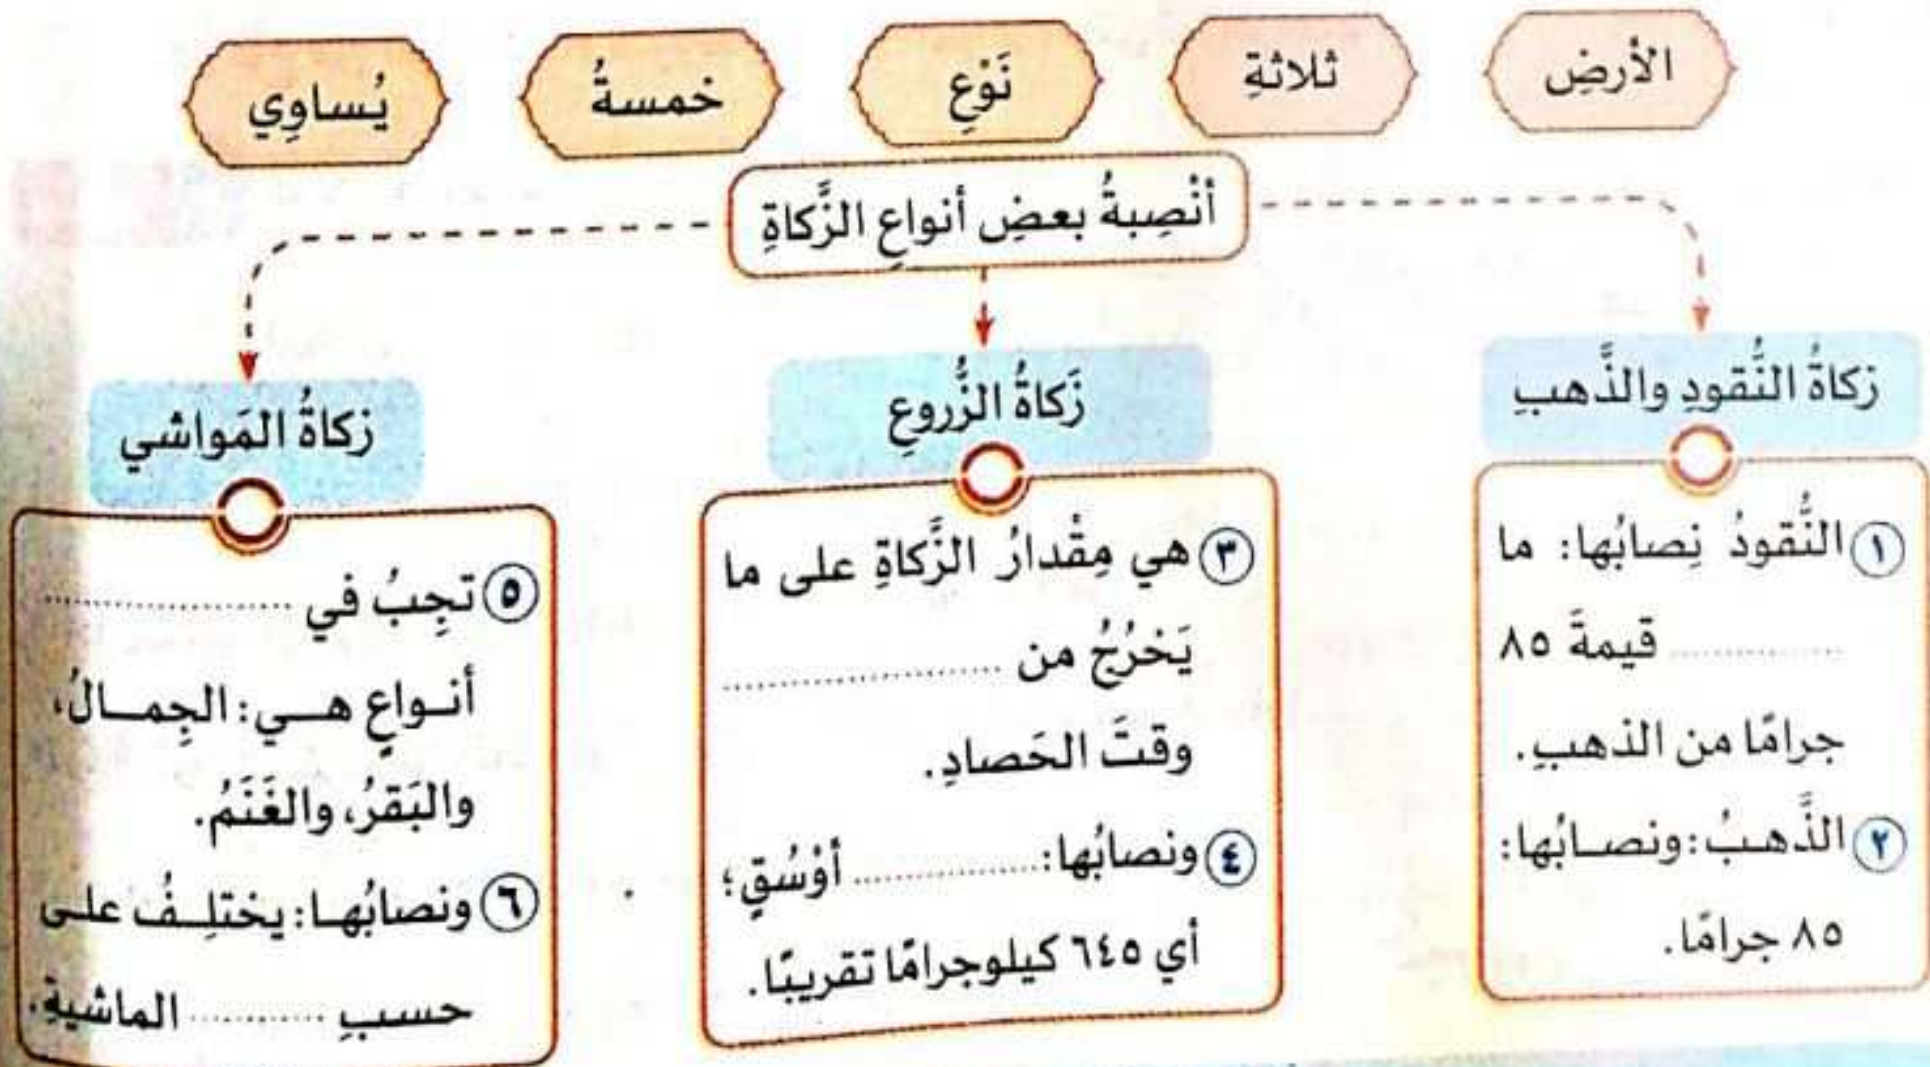 الأرضِ
ثلاثةِ
نَوْعِ
خمسةُ
يُساوِي
أنْصِبةُ بعضِ أنواعِ الزَّكاةِ
زكاةُ النُّقودِ والذَّهبِ
١ النُّقودُ نِصابُها: ما
................ قيمةَ ٨٥
جرامًا من الذهبِ.
٢ الذَّهبُ: ونصابُها:
٨٥ جرامًا.
زَكاةُ الزُّروعِ
٣ هي مِقْدارُ الزَّكاةِ على ما
يَخْرُجُ من ................
وقتَ الحَصادِ.
٤ ونصابُها: ................ أوْسُقٍ؛
أي ٦٤٥ كيلوجرامًا تقريبًا.
زكاةُ المَواشي
٥ تجِبُ في ................
أنواعٍ هي: الجِمالُ،
والبَقرُ، والغَنَمُ.
٦ ونصابُها: يختلِفُ على
حسبِ ............ الماشيةِ.